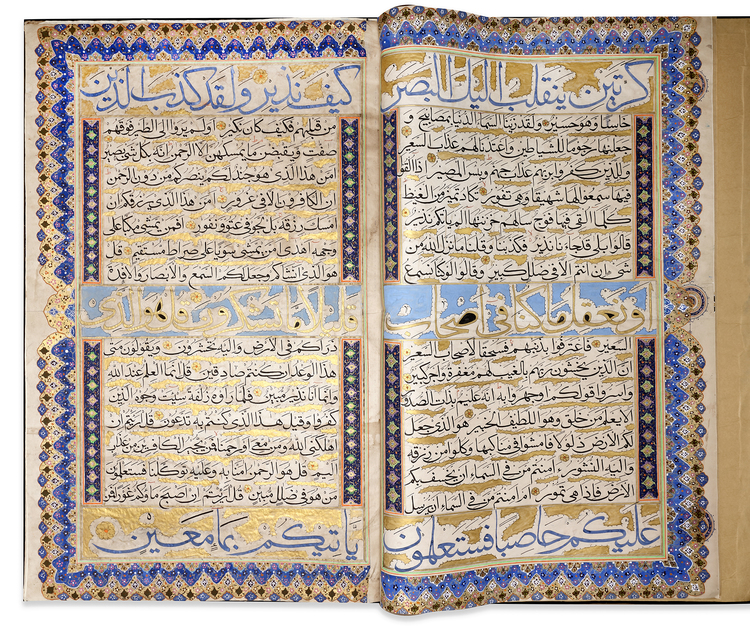 كرتين ينقلب اليك البصر
خاسئا وهو حسير ولقد زينا السماء الدنيا بمصابيح و
جعلناها رجوما للشياطين واعتدنا لهم عذاب السعير
وللذين كفروا بربهم عذاب جهنم وبئس المصير اذا القوا
فيها سمعوا لها شهيقا وهي تفور تكاد تميز من الغيظ
كلما القي فيها فوج سالهم خزنتها الم ياتكم نذير
قالوا بلى قد جاءنا نذير فكذبنا وقلنا ما نزل الله من
شيء ان انتم الا في ضلل كبير وقالوا لو كنا نسمع
او نعقل ما كنا في اصحاب
السعير فاعترفوا بذنبهم فسحقا لاصحاب السعير
ان الذين يخشون ربهم بالغيب لهم مغفرة واجر كبير
واسروا قولكم او اجهروا به انه عليم بذات الصدور
الا يعلم من خلق وهو اللطيف الخبير هو الذي جعل
لكم الارض ذلولا فامشوا في مناكبها وكلوا من رزقه
واليه النشور ءامنتم من في السماء ان يخسف بكم
الارض فاذا هي تمور ام امنتم من في السماء ان يرسل
عليكم حاصبا فستعلمون
كيف نذير ولقد كذب الذين
من قبلهم فكيف كان نكير اولم يروا الى الطير فوقهم
صافات ويقبضن ما يمسكهن الا الرحمن انه بكل شيء بصير
امن هذا الذي هو جند لكم ينصركم من دون الرحمن
ان الكافرون الا في غرور امن هذا الذي يرزقكم ان
امسك رزقه بل لجوا في عتو ونفور افمن يمشي مكبا على
وجهه اهدى امن يمشي سويا على صراط مستقيم قل
هو الذي انشاكم وجعل لكم السمع والابصار والافئدة
قليلا ما تشكرون قل هو الذي
ذراكم في الارض واليه تحشرون ويقولون متى
هذا الوعد ان كنتم صادقين قل انما العلم عند الله
وانما انا نذير مبين فلما راوه زلفة سيئت وجوه الذين
كفروا وقيل هذا الذي كنتم به تدعون قل ارءيتم ان
اهلكني الله ومن معي او رحمنا فمن يجير الكافرين من عذاب
اليم قل هو الرحمن امنا به وعليه توكلنا فستعلمون
من هو في ضلل مبين قل ارءيتم ان اصبح ماؤكم غورا فمن
ياتيكم بماء معين